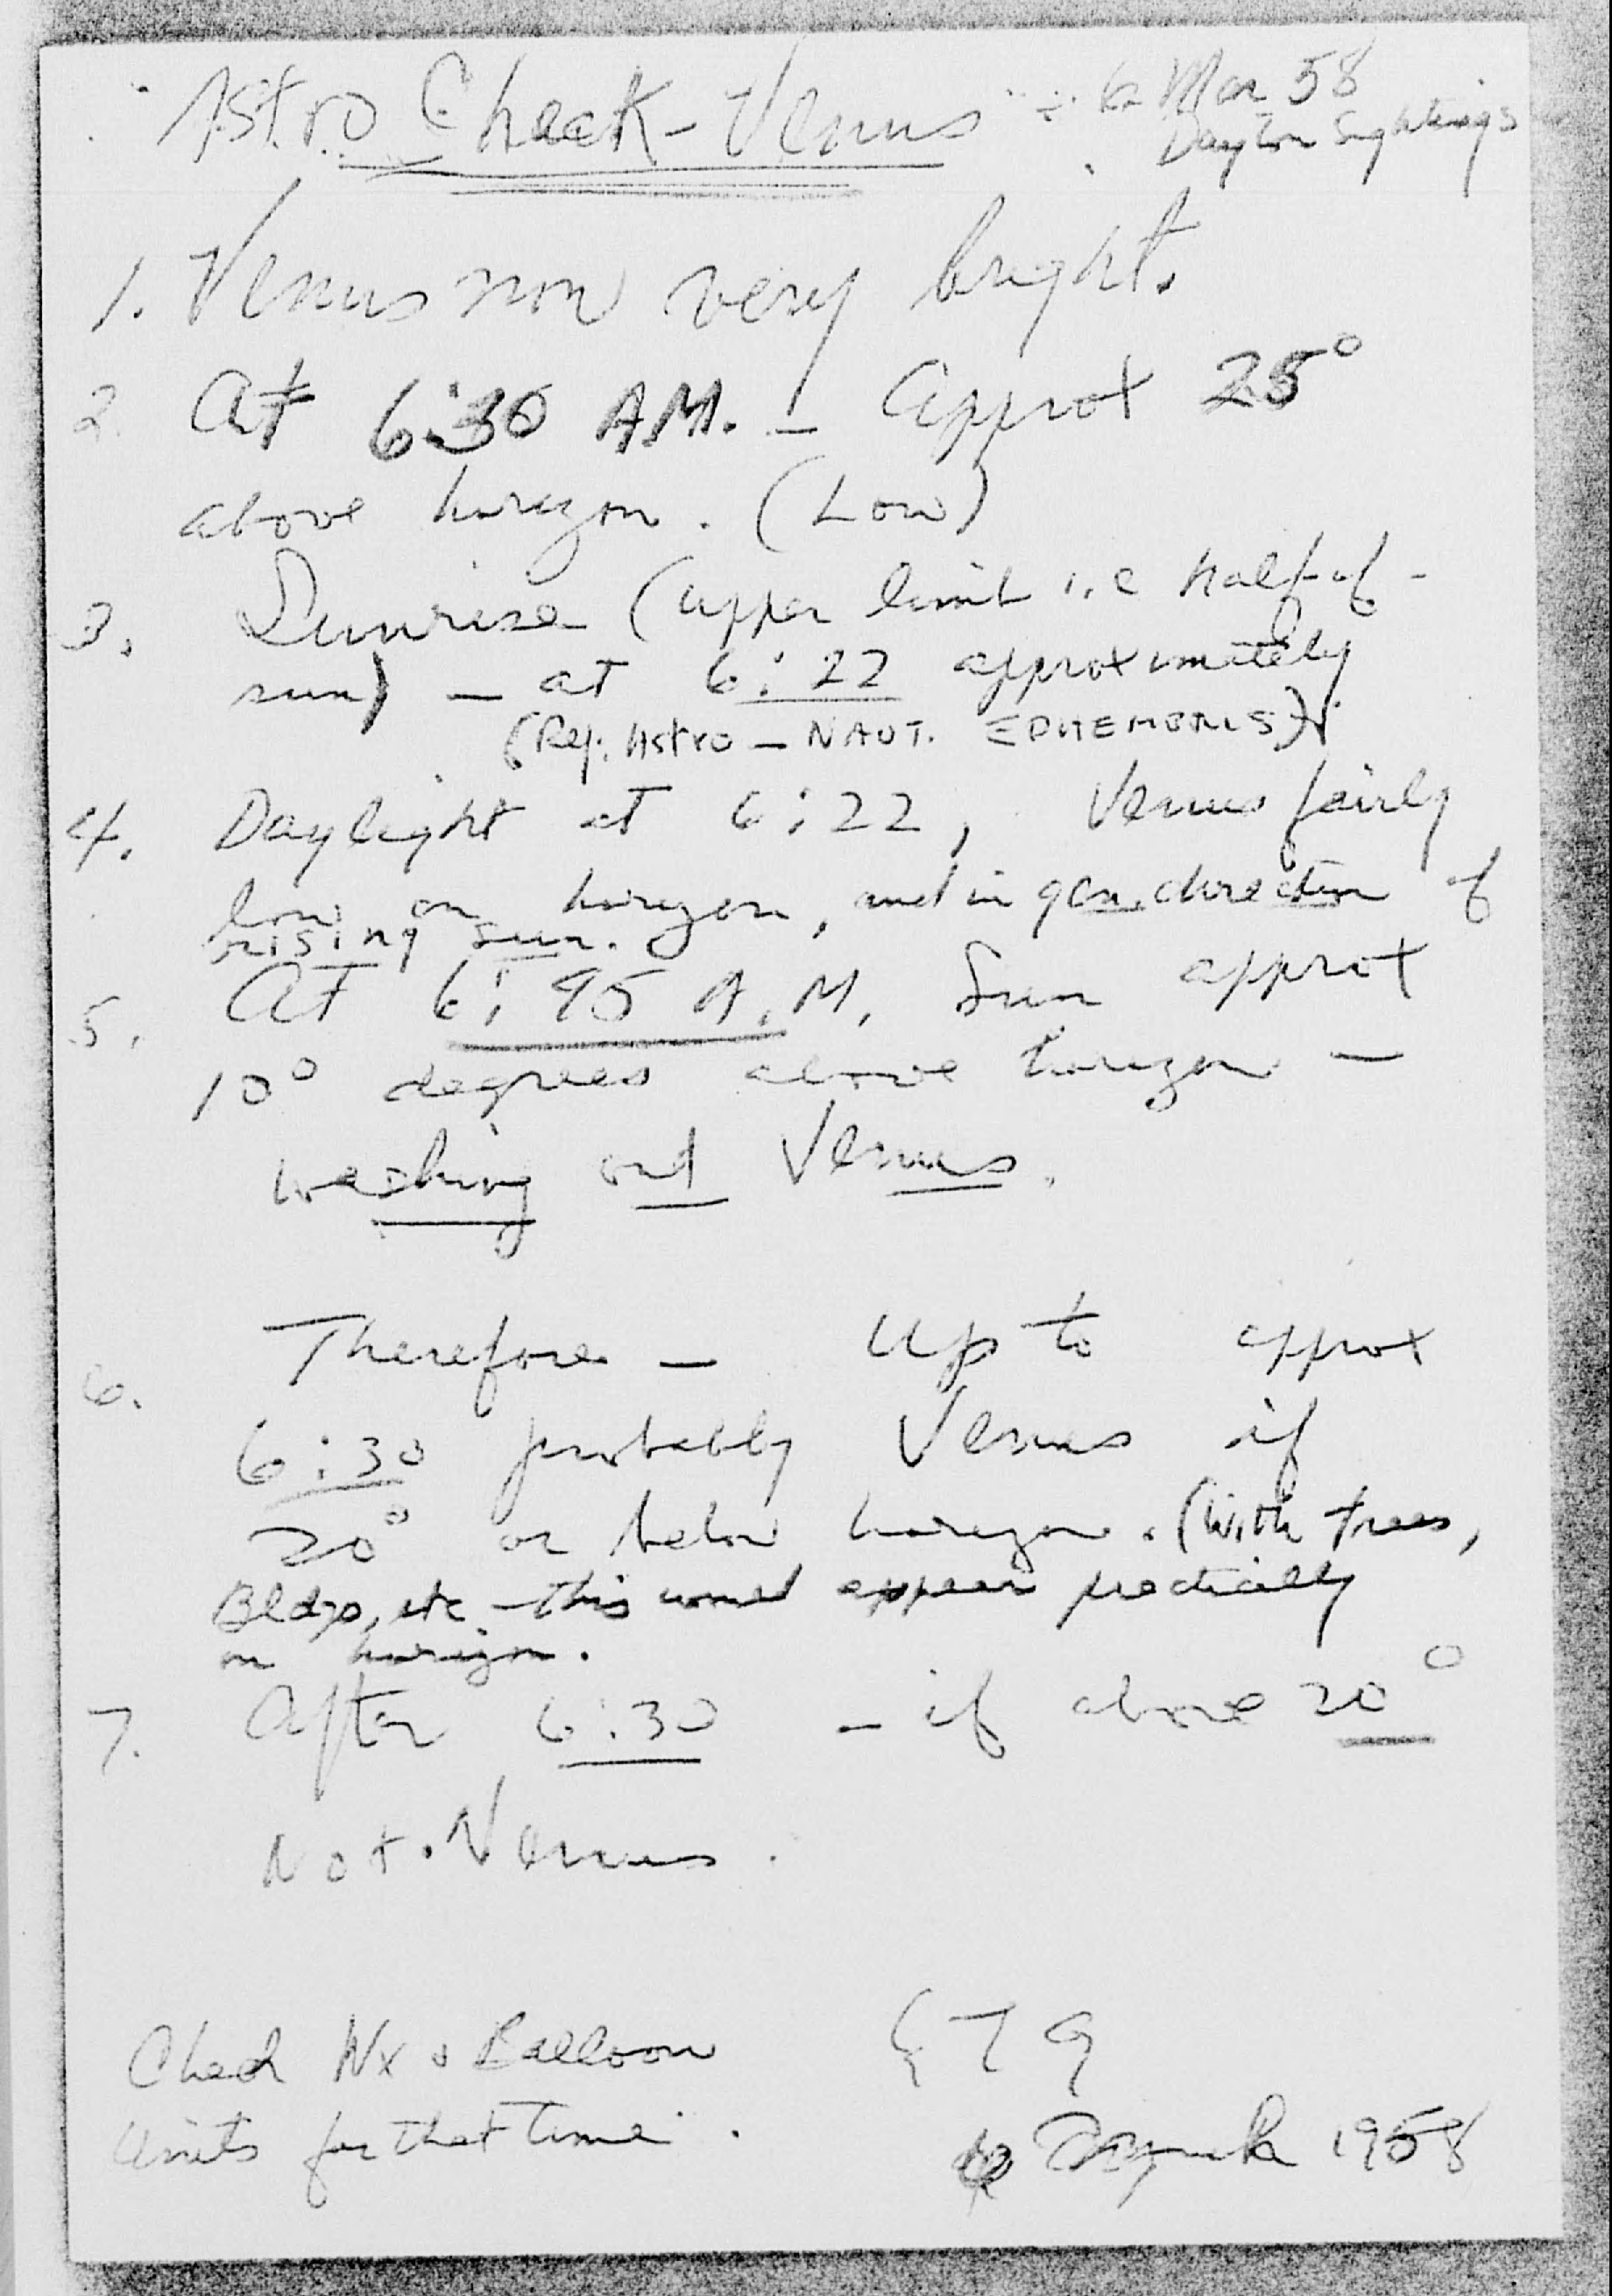 Astro Check - Venus - 6 Mar 58
Dayton Sightings
1. Venus now very bright.
2. At 6:30 A.M. - approx 25°
above horizon. (Low)
3. Sunrise (upper limb i.e half-of-
sun) - at 6:22 approximately
(Ref. Astro - NAUT. EPHEMERIS)
4. Daylight at 6:22, Venus fairly
low on horizon, and in gen. direction of
rising sun.
5. At 6:45 A.M, Sun approx
10° degrees above horizon -
washing out Venus.
6. Therefore - up to approx
6:30 probably Venus if
20° or below horizon. (With trees,
Bldgs, etc - this would appear practically
on horizon.
7. After 6:30 - if above 20°
Not Venus.
Check Wx & Balloon
Units for that time.
GTG
March 1958